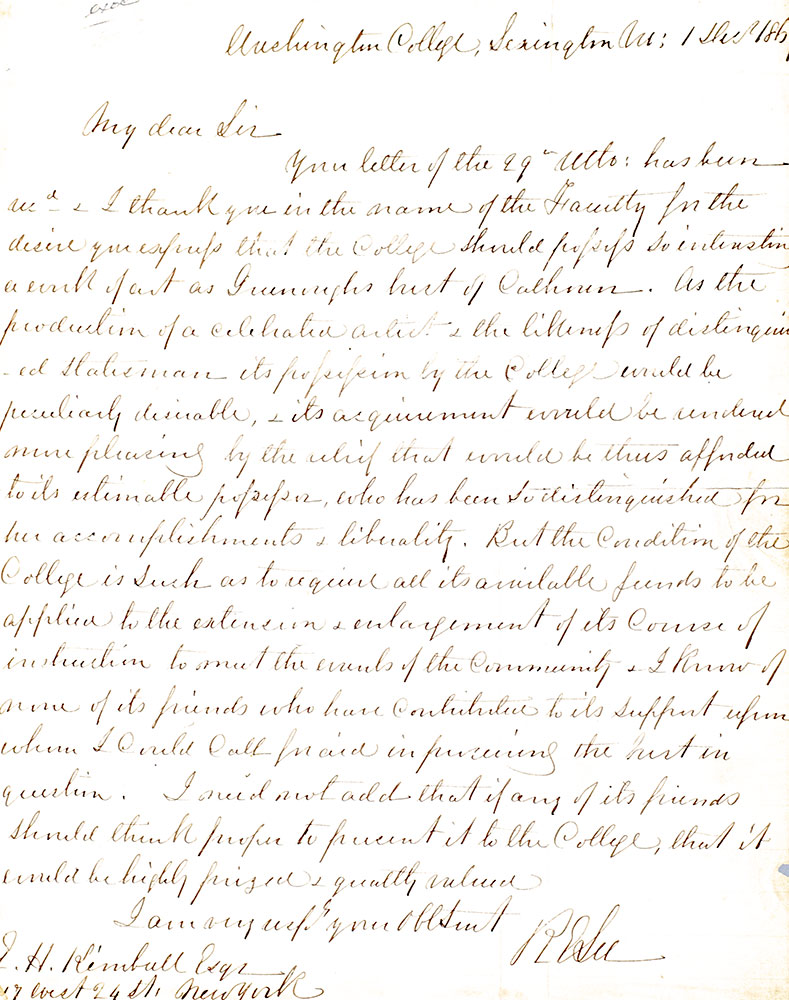 Washington College, Lexington Va: 1 Decr 186
My dear Sir
Your letter of the 29th Ulto: has been
recd & I thank you in the name of the Faculty for the
desire you express that the College should possess so interesting
a work of art as Greenoughs bust of Calhoun. As the
production of a celebrated artist & the likeness of distinguish
-ed statesman its possession by the College would be
peculiarly desirable, & its acquirement would be rendered
more pleasing by the relief that would be thus afforded
to its estimable possessor, who has been so distinguished for
her accomplishments & liberality. But the Condition of the
College is such as to require all its available funds to be
applied to the extension & enlargement of its Course of
instruction to meet the wants of the Community & I know of
none of its friends who have Contributed to its support upon
whom I Could Call for aid in procuring the bust in
question. I need not add that if any of its friends
should think proper to present it to the College, that it
would be highly prized & greatly valued
I am very respy your Obt Servt
R E Lee
H. Kimball Esqr
West 24 St. New York